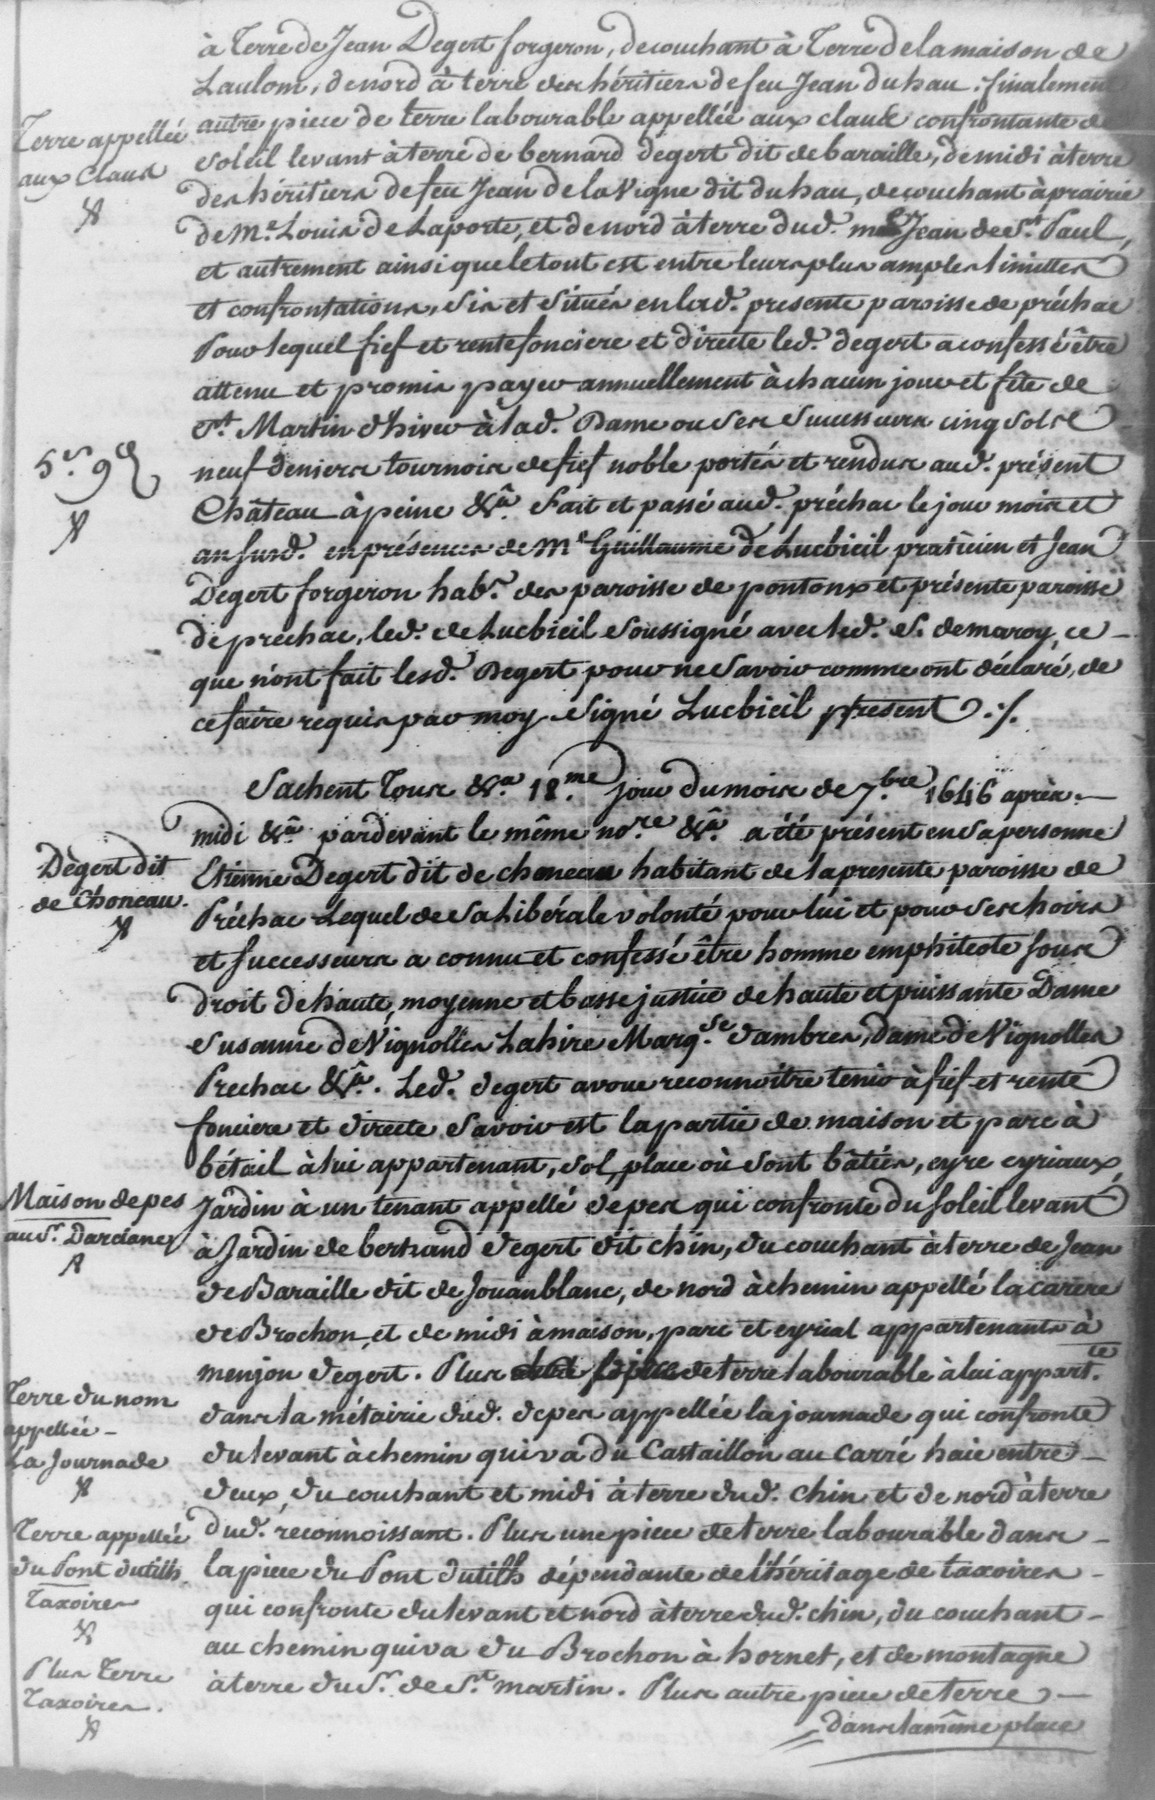 à Terre de Jean Degert forgeron, de couchant à Terre de la maison de
Laulom, de nord à terre des héritiers de feu Jean du hau. finalement
Terre appellée
aux Claus
autre piece de terre labourable appellée aux claus confrontante de
soleil levant à terre de bernard degert dit de baraille, de midi à terre
des héritiers de feu Jean de la Vigne dit du hau, de couchant à prairie
de Me. Louis de Laporte, et de nord à terre dud. Jean de St. Paul,
et autrement ainsi que le tout est entre leurs plus amples limittes
et confrontations, sis et situés en lad. presente paroisse de préchac
Pour lequel fief et rente fonciere et directe led. degert a confessé être
attenu et promis payer annuellement à chacun jour et fête de
St. Martin d'hiver à lad. Dame ou ses successeurs cinq sols
5s. 9d
neuf deniers tournois de fief noble portés et rendus aud. présent
Château à peine &a. Fait et passé aud. préchac le jour mois et
an susd. en présences de Me Guillaume de Lucbieil praticien et Jean
Degert forgeron habs. des paroisse de pontonx et présente paroisse
de prechac, led. de Lucbieil soussigné avec led. S. demaroy, ce
que n'ont fait lesd. Degert pour ne savoir comme ont déclaré, de
ce faire requis par moy signé Lucbieil present ./.
Sachent Tous &a. 18.me jour du mois de 7.bre 1646 après
midi &a. pardevant le même nore. &a. a été présent en sa personne
Degert dit
de Choneau.
Etienne Degert dit de choneau habitant de la presente paroisse de
Préchac Lequel de sa libérale volonté pour lui et pour ses hoirs
et successeurs a connu et confessé être homme emphiteote sous
droit de haute, moyenne et basse justice de haute et puissante Dame
Susanne de Vignolles Lahire Marq.se d'ambres, dame de Vignolles
Prechac &a. Led. degert avoue reconnoitre tenir à fief et rente
fonciere et directe savoir est la partie de maison et parc à
bétail à lui appartenant, sol, place où sont bâties, eyre eyriaux,
Maison de pes
au Sr. Dardaney
Jardin à un tenant appellé de pes qui confronte du soleil levant
à Jardin de bertrand degert dit chin, du couchant à terre de Jean
de Baraille dit de Jouanblanc, de nord à chemin appellé la carere
de Brochon et de midi à maison, parc et eyrial appartenants à
menjon degert. Plus piece de terre labourable à lui appart.te
Terre du nom
appellée
La Journade
dans la métairie dud. depes appellée la journade qui confronte
du levant à chemin qui va du Castaillon au Carré haie entre
deux, du couchant et midi à terre dud. chin et de nord à terre
Terre appellée
du Pont dutilh
Taxoires
dud. reconnoissant. Plus une piece de terre labourable dans
la piece du Pont dutilh dépendante de l'héritage de taxoires
qui confronte du levant et nord à terre dud. chin, du couchant
au chemin qui va du Brochon à hornet, et de montagne
Plus Terre
Taxoires.
à terre du Sr. de St. martin. Plus autre piece de terre
dans la même place